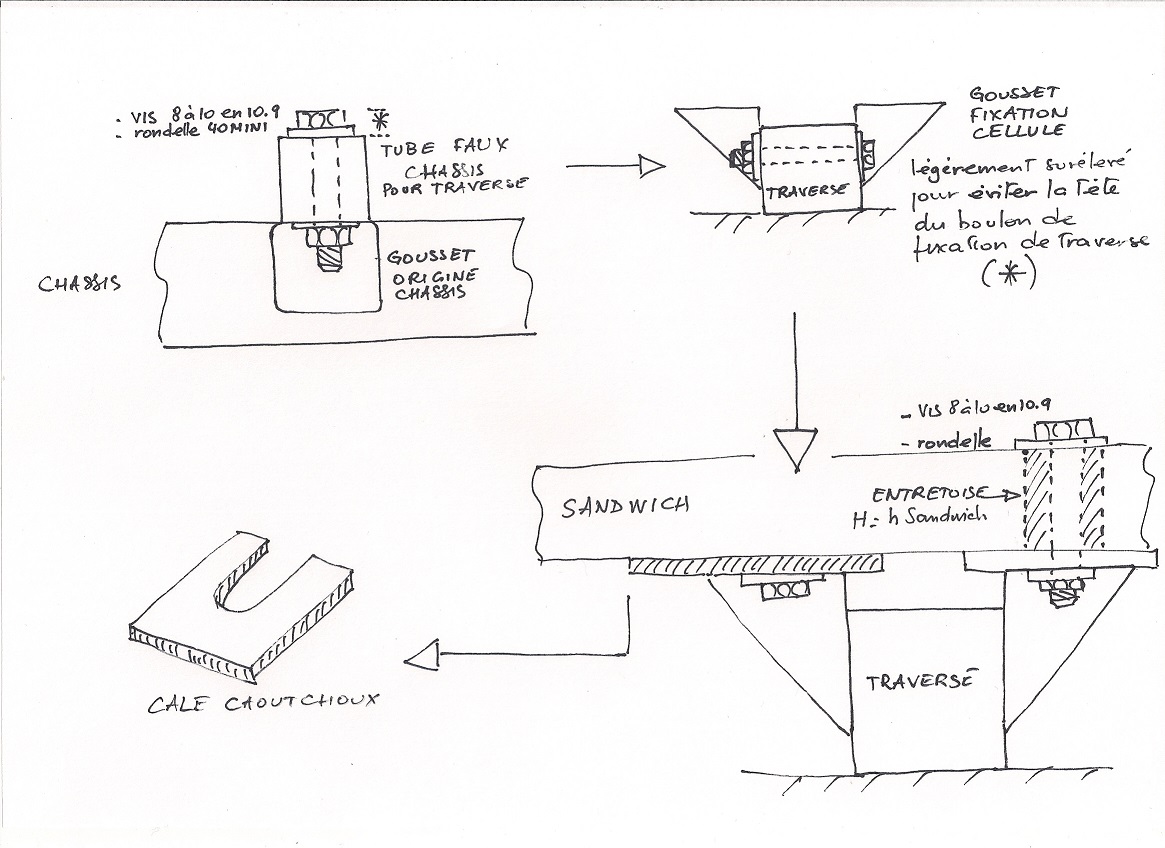 - VIS 8 à 10 en 10.9
- rondelle 40 MINI
*
TUBE FAUX
CHASSIS
POUR TRAVERSE
CHASSIS
GOUSSET
ORIGINE
CHASSIS
GOUSSET
FIXATION
CELLULE
légérement surélevé
pour éviter la Tête
du boulon de
fixation de Traverse
(*)
TRAVERSE
- VIS 8 à 10 en 10.9
- rondelle
SANDWICH
ENTRETOISE
H = h Sandwich
TRAVERSE
CALE CAOUTCHIOUX